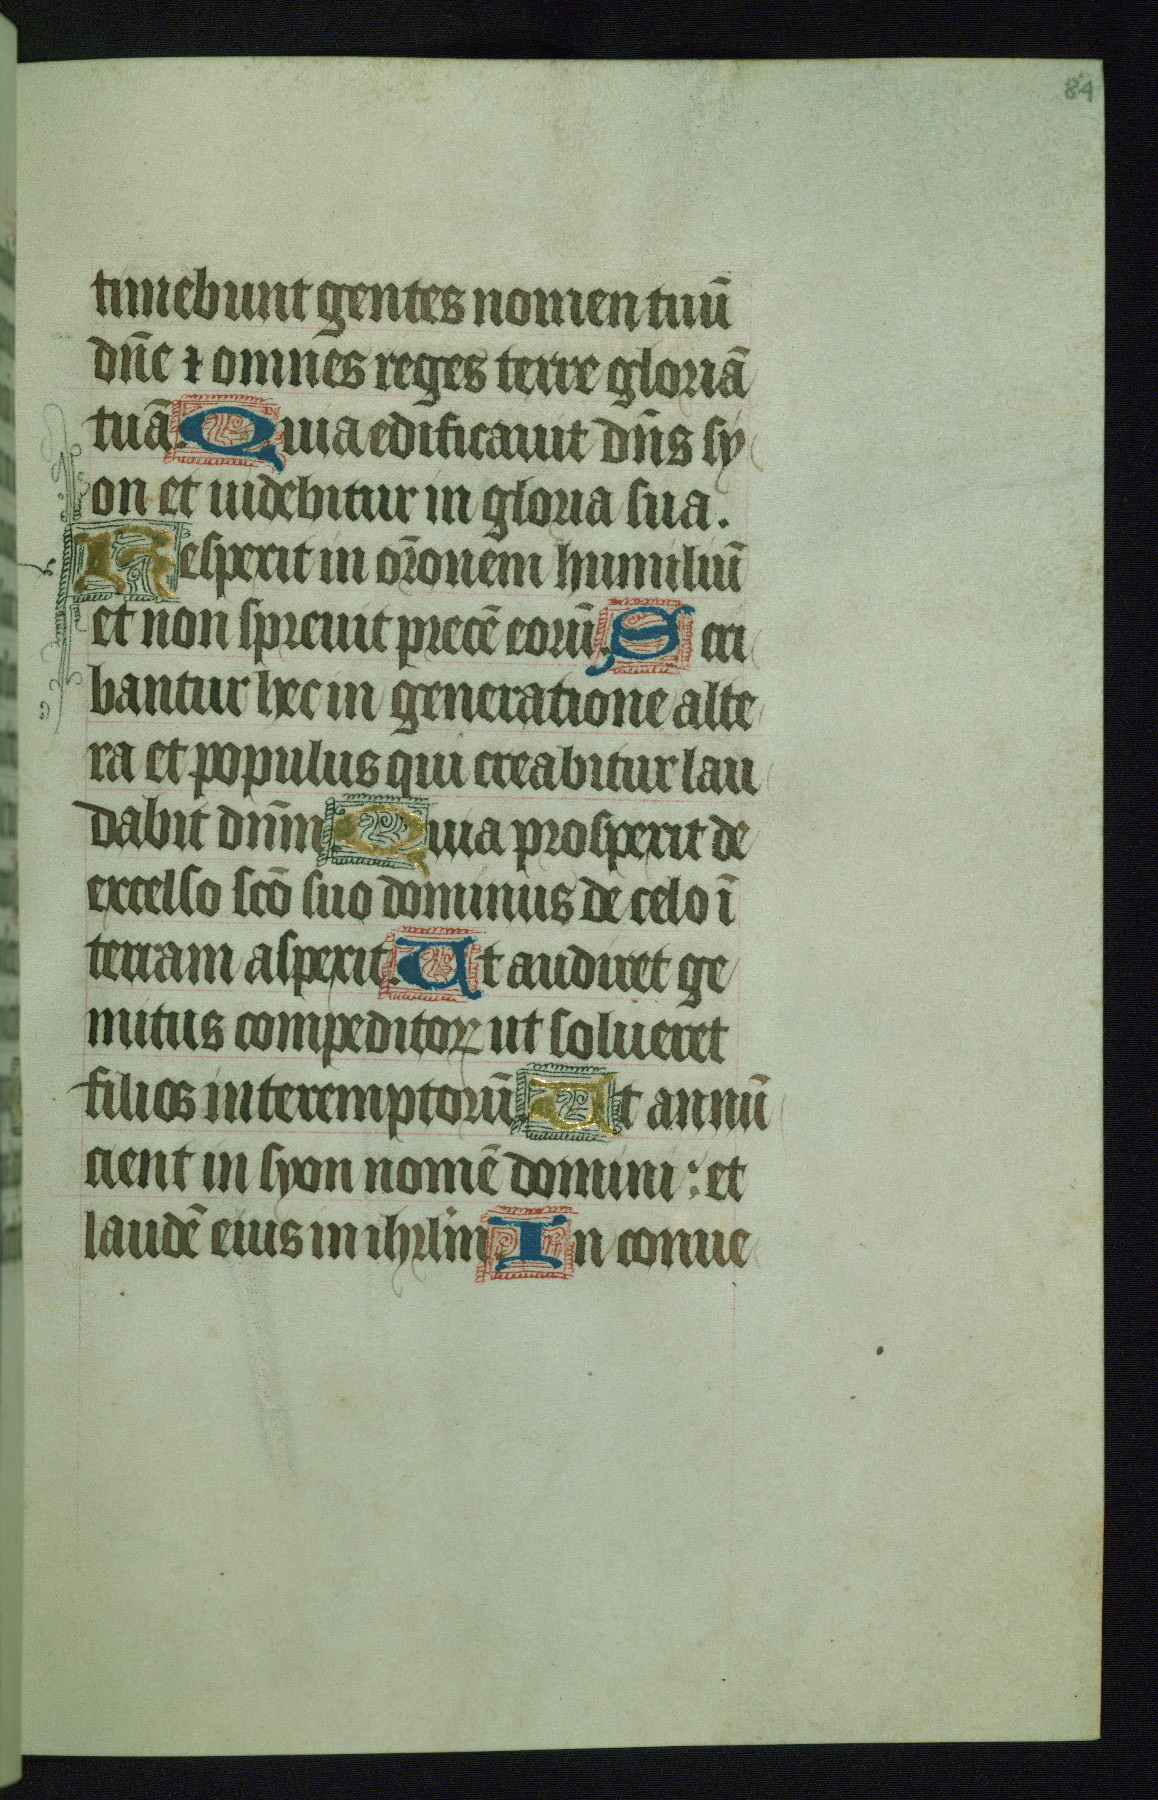 84
timebunt gentes nomen tuū
dn̄e ⁊ omnes reges terre gloriā
tuā. Quia edificauit dn̄s sy
on et uidebitur in gloria sua.
Respexit in or̄onem humiliū
et non spreuit precē eorū. Scri
bantur hec in generatione alte
ra et populus qui creabitur lau
dabit dn̄m. Quia prospexit de
excelso scō suo dominus de celo ī
terram aspexit. Ut audiret ge
mitus compeditoꝝ ut solueret
filios interemptorū. Ut annū
cient in syon nomē domini : et
laudē eius in ihrl̄m. In conue